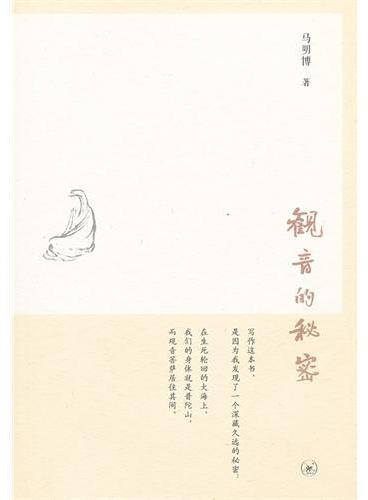 马明博 著
觀音的秘密
写作这本书，
是因为我发现了一个深藏久远的秘密：
在生死轮回的大海上，
我们的身体就是普陀山，
而观音菩萨居住其间。